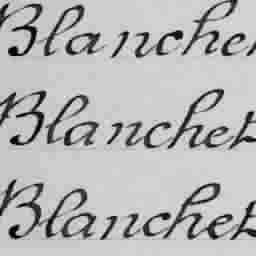 Blanche
Blanchet
Blanchet